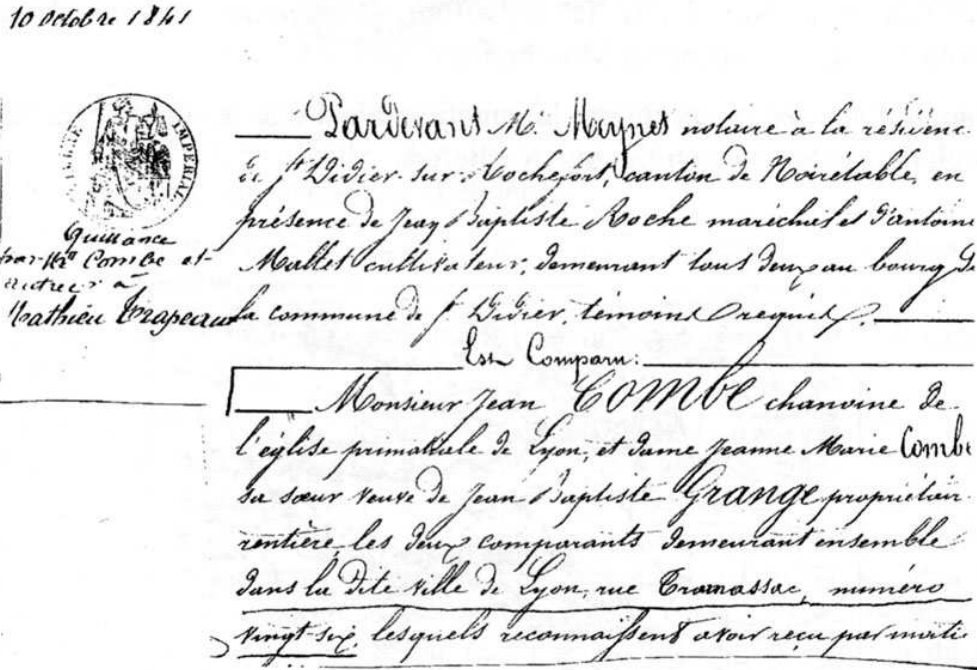 10 octobre 1841
IMPERIAL
Quittance
par Mr Combe et
autres à
Mathieu Trapeaux
Pardevant Me. Meynet notaire à la résidenc
de St Didier-sur-Rochefort, canton de Noirétable, en
présence de Jean Baptiste Roche maréchal et d'antoine
Mallet cultivateur, demeurant tous deux au bourg de
la commune de St Didier, témoins requis.
Est Comparu:
Monsieur Jean COMBE chanoine de
l'église primatiale de Lyon, et dame Jeanne Marie Combe
sa sœur veuve de Jean Baptiste Grange propriétair
rentière, les deux comparants demeurant ensemble
dans la dite ville de Lyon, rue Tramassac, numéro
vingt six, lesquels reconnaissent avoir reçu par moitié